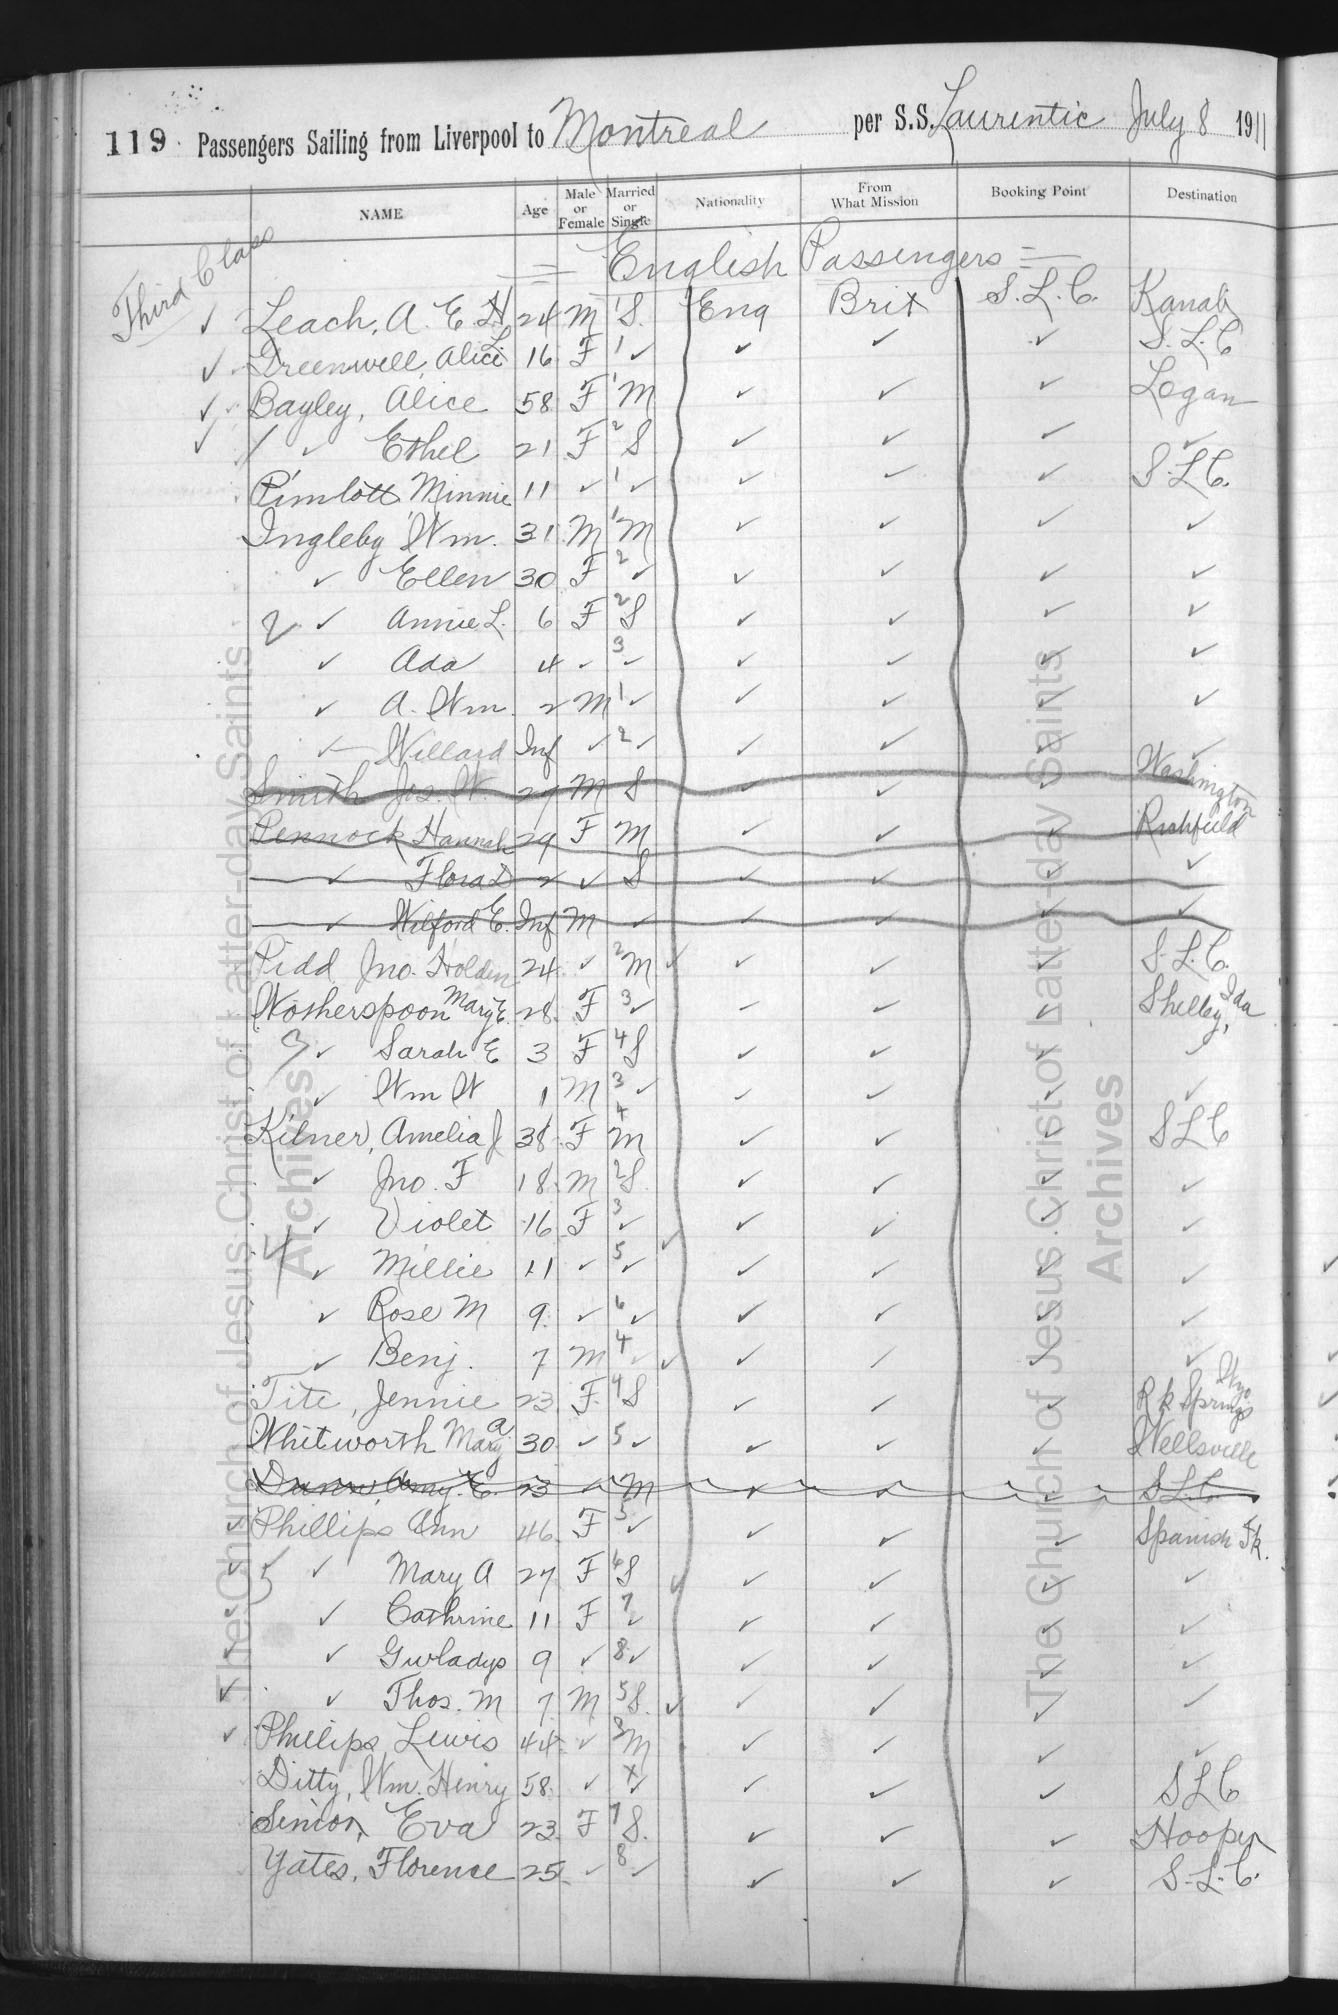 119 Passengers Sailing from Liverpool to Montreal per S.S. Laurentic July 8 1911
NAME Age Male or Female Married or Single Nationality From What Mission Booking Point Destination
Third Class
= English Passengers =
✓ Leach, A. E. H 24 M 1 S. Eng Brit S.L.C. Kanab
✓ Greenwell, Alice L 16 F 1 ✓ ✓ ✓ ✓ S.L.C
✓ Bayley, Alice 58 F 1 M ✓ ✓ ✓ Logan
✓ ✓ Ethel 21 F 2 S ✓ ✓ ✓ ✓
Pimlott Minnie 11 ✓ 1 ✓ ✓ ✓ ✓ S.L.C.
Ingleby Wm. 31 M 1 M ✓ ✓ ✓ ✓
✓ Ellen 30 F 2 ✓ ✓ ✓ ✓ ✓
2 ✓ Annie L. 6 F 2 S ✓ ✓ ✓ ✓
✓ Ada 4 ✓ 3 ✓ ✓ ✓ ✓ ✓
✓ A. Wm. 2 M 1 ✓ ✓ ✓ ✓ ✓
✓ Willard Inf ✓ 2 ✓ ✓ ✓ ✓ ✓
Smith Jos. W. 27 M S ✓ ✓ ✓ Washington
Pennock Hannah 29 F M ✓ ✓ ✓ Richfield
✓ Flora D 2 ✓ S ✓ ✓ ✓ ✓
✓ Wilford E. Inf M ✓ ✓ ✓ ✓ ✓
Pidd Jno. Holden 24 ✓ 2 M ✓ ✓ ✓ ✓ S.L.C.
Wotherspoon Mary E. 28 F 3 ✓ ✓ ✓ ✓ Shelley, Ida
3 ✓ Sarah E 3 F 4 S ✓ ✓ ✓ ✓
✓ Wm W 1 M 3 ✓ ✓ ✓ ✓ ✓
Kilner, Amelia J 38 F 4 M ✓ ✓ ✓ S L C
✓ Jno. F 18 M 2 S. ✓ ✓ ✓ ✓
✓ Violet 16 F 3 ✓ ✓ ✓ ✓ ✓ ✓
4 ✓ Millie 11 ✓ 5 ✓ ✓ ✓ ✓ ✓
✓ Rose M 9 ✓ 6 ✓ ✓ ✓ ✓ ✓
✓ Benj. 7 M 4 ✓ ✓ ✓ ✓ ✓ ✓
Tite, Jennie 23 F. 4 S ✓ ✓ ✓ Rk Springs Wyo.
Whitworth Mary A 30 ✓ 5 ✓ ✓ ✓ ✓ Wellsville
Amy E. 23 ✓ M ✓ ✓ ✓ S L C.
✓ Phillips Ann 46 F 5 ✓ ✓ ✓ ✓ Spanish Fk.
✓ 5 ✓ Mary A 27 F 6 S ✓ ✓ ✓ ✓ ✓
✓ ✓ Cathrine 11 F 7 ✓ ✓ ✓ ✓ ✓
✓ ✓ Gwladys 9 ✓ 8 ✓ ✓ ✓ ✓ ✓
✓ ✓ Thos. M 7 M 5 S. ✓ ✓ ✓ ✓ ✓
✓ Phillips Lewis 44 ✓ 8 M ✓ ✓ ✓ ✓
Ditty, Wm. Henry 58 ✓ x ✓ ✓ ✓ ✓ S L C
Senior, Eva 23 F 7 S. ✓ ✓ ✓ Hooper
Yates, Florence 25 ✓ 8 ✓ ✓ ✓ ✓ S.L.C.
The Church of Jesus Christ of Latter-day Saints
Archives
The Church of Jesus Christ of Latter-day Saints
Archives